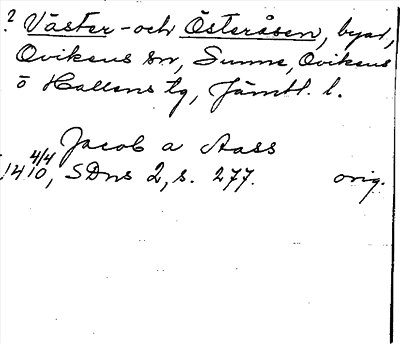 ? Väster- och Österåsen, byar,
Ovikens sn, Sunne, Ovikens
o Hallens tg, Jämtl. l.
Jacob a Aass
1410 4/4, SDns 2, s. 277. orig.